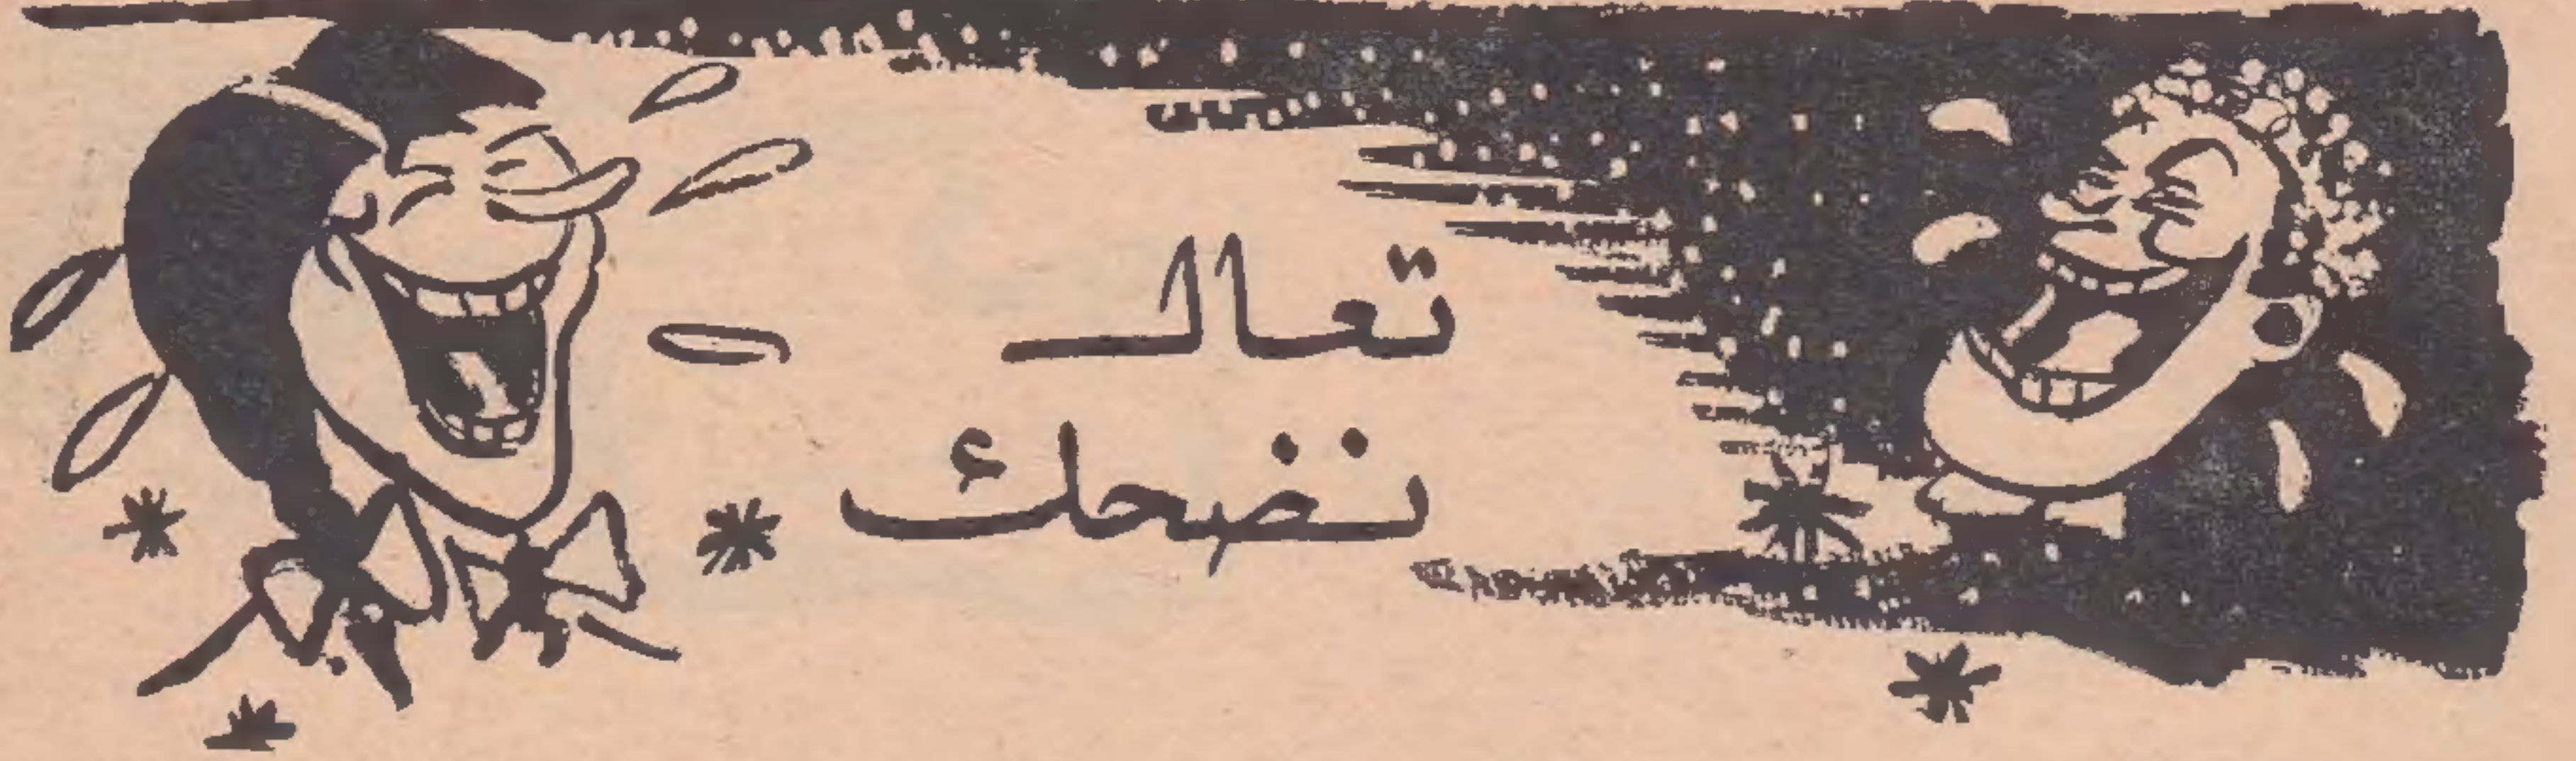 تعالـ
نضحك